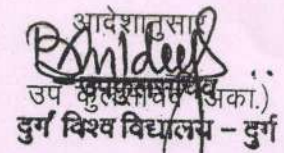 आदेशानुसार
उपकुलसचिव
उप कुलसचिव (अका.)
दुर्ग विश्व विद्यालय – दुर्ग